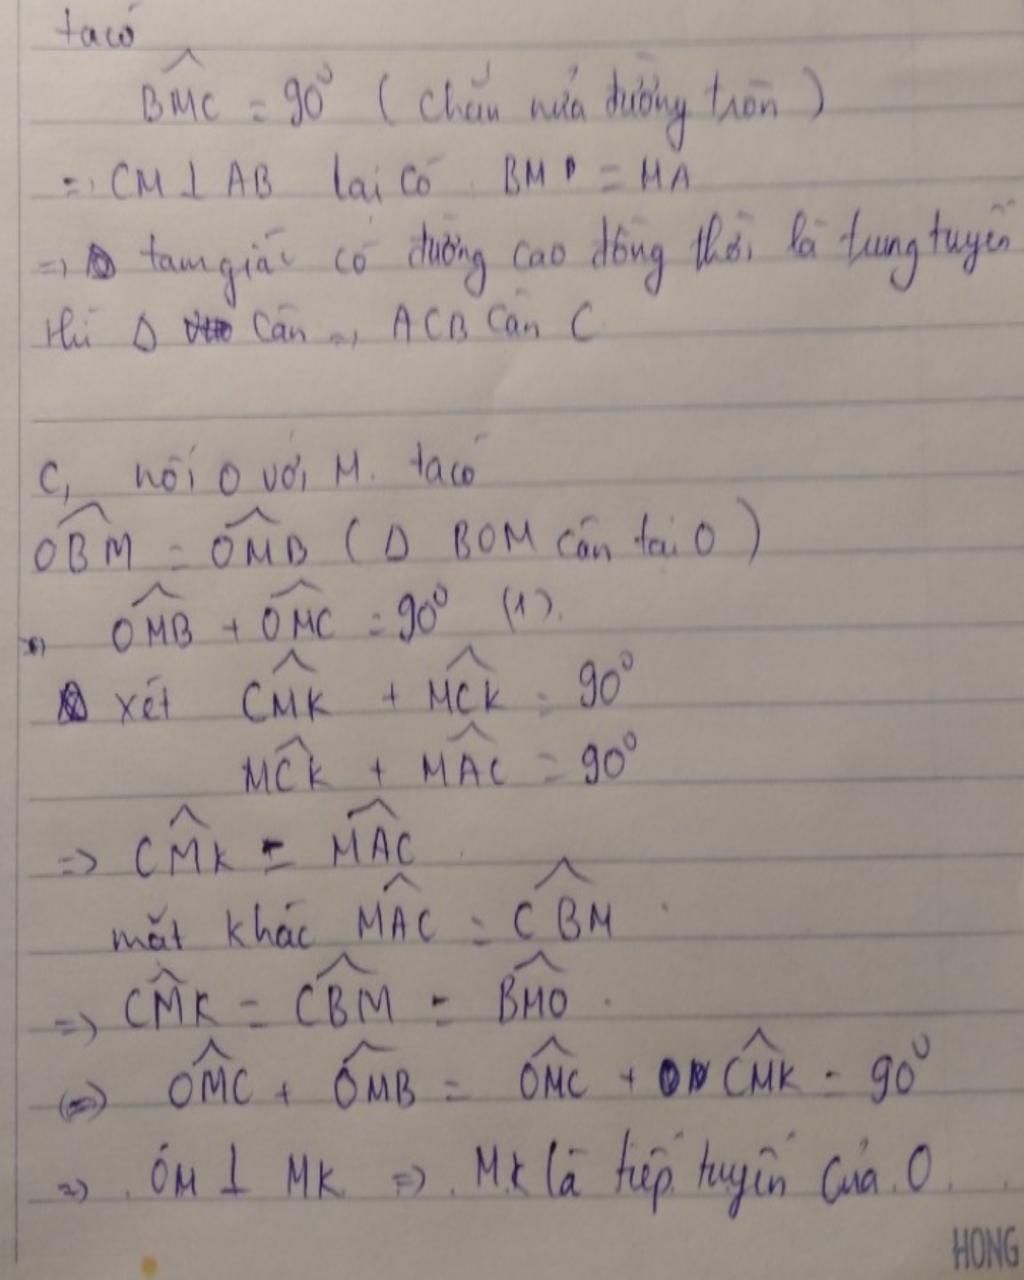 ta có
BMC = 90° ( chắn nửa đường tròn )
=> CM ⊥ AB lại có BM = MA
=> tam giác có đường cao đồng thời là trung tuyến
thì Δ cân => ACB cân C
C, nối O với M. ta có
OBM = OMB ( Δ BOM cân tại O )
=> OMB + OMC = 90° (1).
xét CMK + MCK = 90°
MCK + MAC = 90°
=> CMK = MAC
mặt khác MAC = CBM
=> CMK = CBM = BMO.
(=>) OMC + OMB = OMC + CMK = 90°
=> OM ⊥ MK => MK là tiếp tuyến của O.
HONG